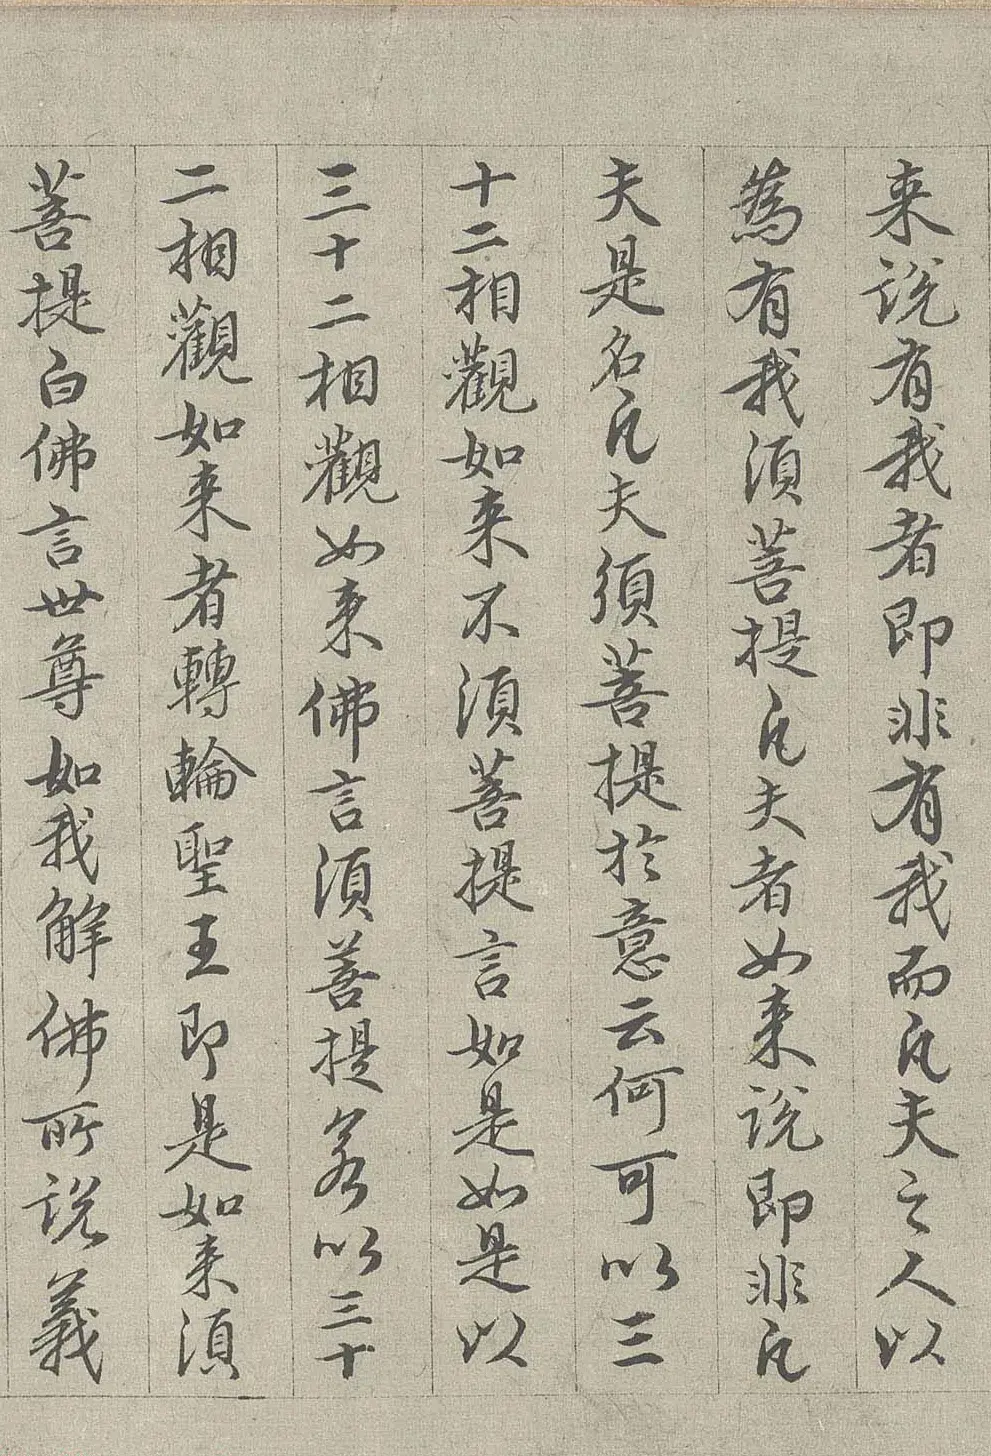 来說有我者即非有我而凡夫之人以
為有我須菩提凡夫者如来說即非凡
夫是名凡夫須菩提於意云何可以三
十二相觀如来不須菩提言如是如是以
三十二相觀如来佛言須菩提若以三十
二相觀如来者轉輪聖王即是如来須
菩提白佛言世尊如我解佛所說義